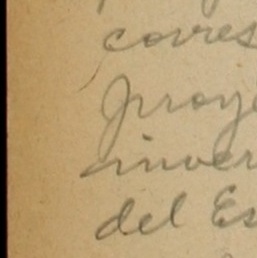 corres
proye
inver
del Es